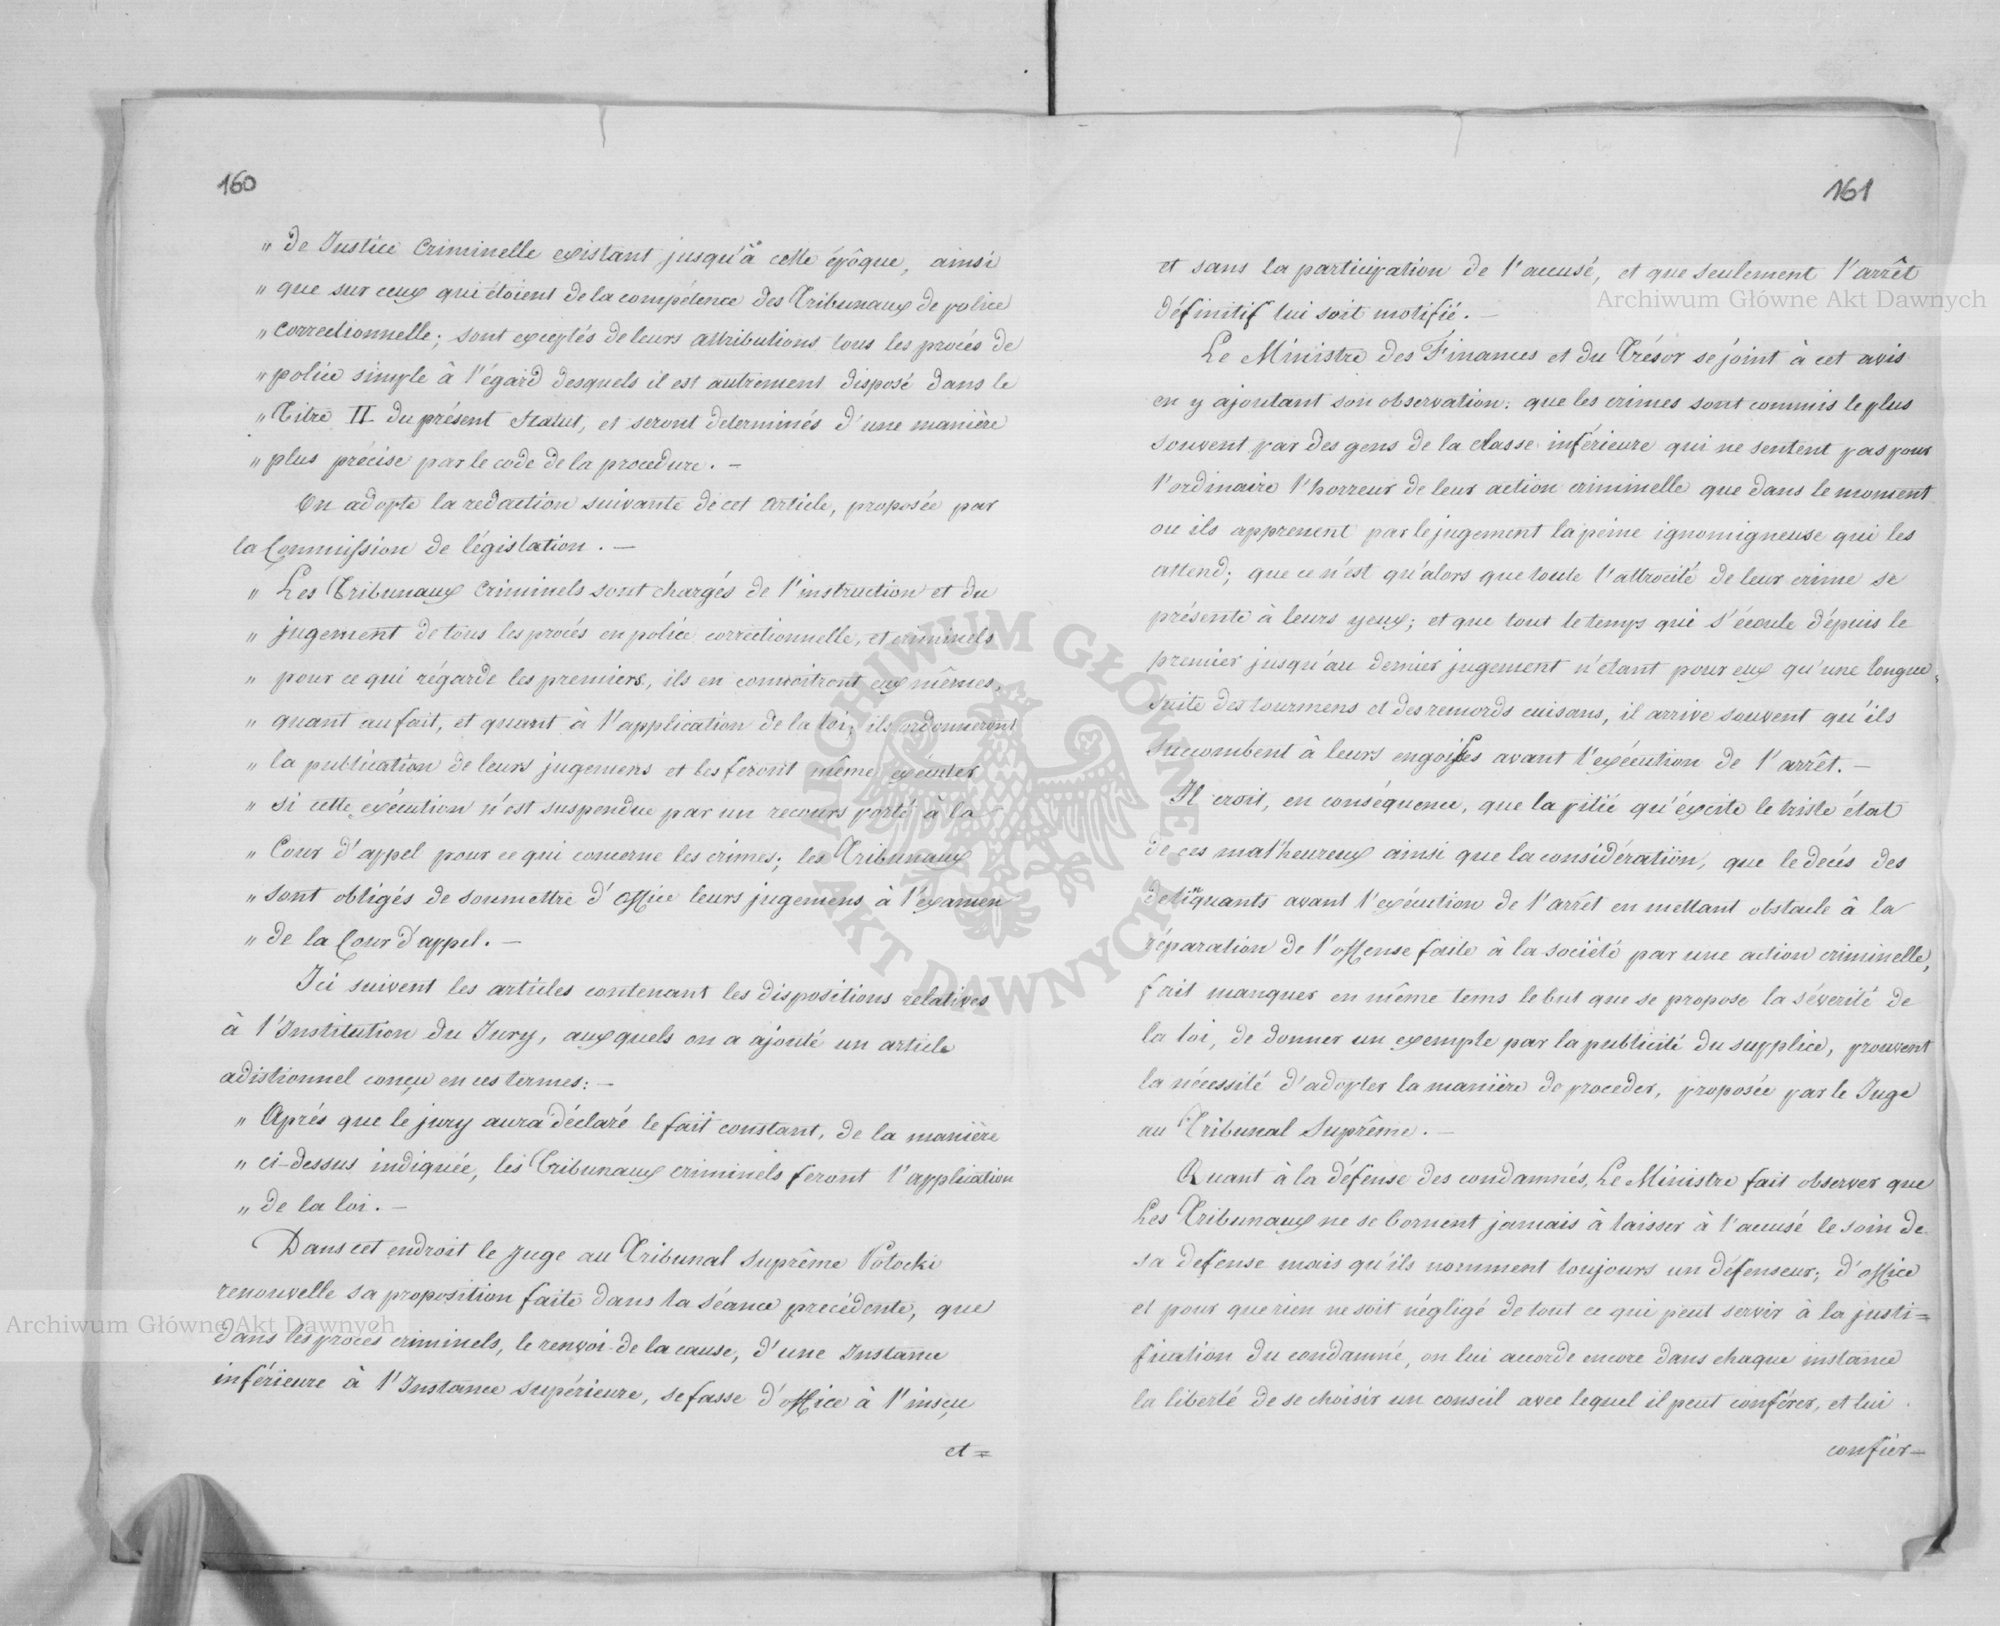 160
" de Justice Criminelle existant jusqu'à cette épôque, ainsi
" que sur ceux qui étoient de la compétence des Tribunaux de police
" correctionnelle; sont exceptés de leurs attributions tous les procés de
" police simple à l'égard desquels il est autrement disposé dans le
" Titre II du présent Statut, et seront determinés d'une manière
" plus précise par le code de la procedure. —
On adopte la redaction suivante de cet article, proposée par
la Commission de législation. —
" Les Tribunaux Criminels sont chargés de l'instruction et du
" jugement de tous les procés en police correctionnelle, et criminels
" pour ce qui régarde les premiers, ils en connoitront eux mêmes,
" quant au fait, et quant à l'application de la loi; ils ordonneront
" la publication de leurs jugemens et les feront même executer
" si cette exécution n'est suspendue par un recours porté à la
" Cour d'appel pour ce qui concerne les crimes; les Tribunaux
" sont obligés de soumettre d'office leurs jugemens à l'examen
" de la Cour d'appel. —
Ici suivent les articles contenant les dispositions relatives
à l'Institution du Jury, auxquels on a ajouté un article
adistionnel conçu en ces termes: —
" Aprés que le jury aura déclaré le fait constant, de la manière
" ci-dessus indiquée, les Tribunaux criminels feront l'application
" de la loi. —
Dans cet endroit le Juge au Tribunal Suprême Potocki
renouvelle sa proposition faite dans la séance precédente, que
dans les procés criminels, le renvoi de la cause, d'une Instance
inférieure à l'Instance supérieure, se fasse d'office à l'insçu
et =
161
et sans la participation de l'accusé, et que seulement l'arrêt
définitif lui soit notifié. —
Le Ministre des Finances et du Trésor se joint à cet avis
en y ajoutant son observation: que les crimes sont commis le plus
souvent par des gens de la classe inférieure qui ne sentent pas pour
l'ordinaire l'horreur de leur action criminelle que dans le moment
ou ils apprenent par le jugement la peine ignomigneuse qui les
attend; que ce n'est qu'alors que toute l'attrocité de leur crime se
présente à leurs yeux; et que tout le temps qui s'écoule dépuis le
premier jusqu'au dernier jugement n'étant pour eux qu'une longue
suite des tourmens et des remords cuisans, il arrive souvent qu'ils
succombent à leurs engoisses avant l'exécution de l'arrêt. —
Il croit, en conséquence, que la pitié qu'éxcite le triste état
de ces malheureux ainsi que la considération, que le decés des
delinquants avant l'exécution de l'arrêt en mettant obstacle à la
réparation de l'offense faite à la société par une action criminelle,
fait manquer en même tems le but que se propose la séverité de
la loi, de donner un exemple par la publicité du supplice, prouvent
la nécessité d'adopter la manière de proceder, proposée par le Juge
au Tribunal Suprême. —
Quant à la défense des condamnés, Le Ministre fait observer que
Les Tribunaux ne se bornent jamais à laisser à l'accusé le soin de
sa defense mais qu'ils nomment toujours un défenseur; d'office
et pour que rien ne soit négligé de tout ce qui peut servir à la justi=
fication du condamné, on lui accorde encore dans chaque instance
la liberté de se choisir un conseil avec lequel il peut conférer, et lui
confier —
Archiwum Główne Akt Dawnych
Archiwum Główne Akt Dawnych
ARCHIWUM GŁÓWNE AKT DAWNYCH